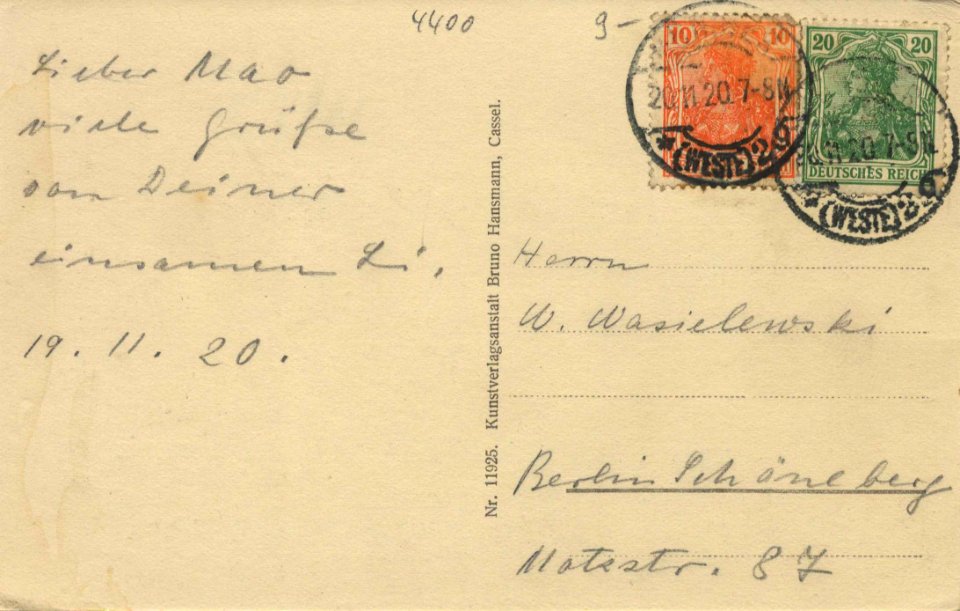 4400
9-
Lieber Mao
viele Grüße
von Deiner
einsamen Li.
19. 11. 20.
Nr. 11925. Kunstverlagsanstalt Bruno Hansmann, Cassel.
10 10
20 20
DEUTSCHES REICH
20.11.20. 7-8N.
*(WESTE)29
20.11.20. 7-8N.
*(WESTE)29
Herrn
W. Wasielewski
Berlin Schöneberg
Motzstr. 87